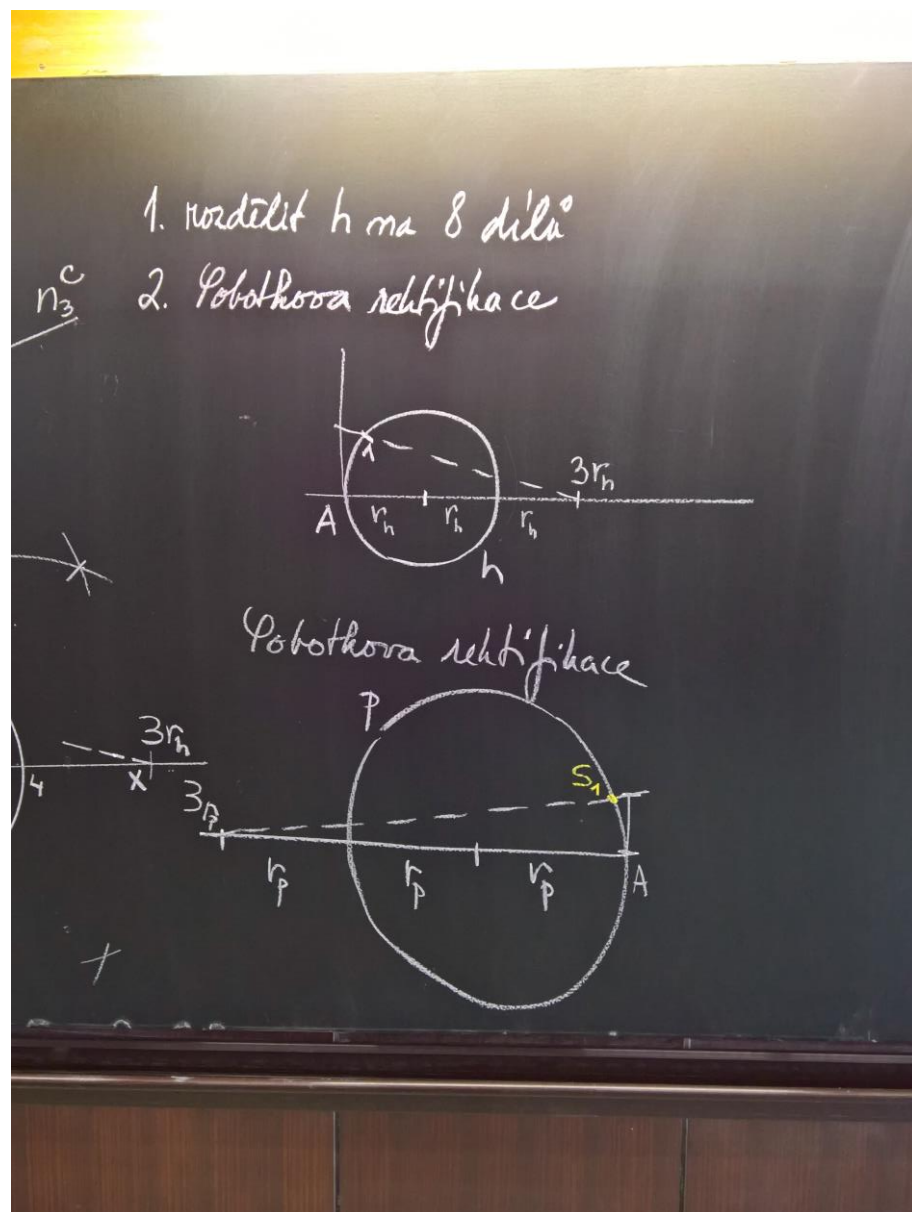 1. rozdělit h na 8 dílů
n₃ᶜ
2. Sobotkova rektifikace
1
3rₕ
A
rₕ rₕ rₕ
h
Sobotkova rektifikace
P
3rₕ
4
x
S₁
3rₚ
rₚ rₚ rₚ
A